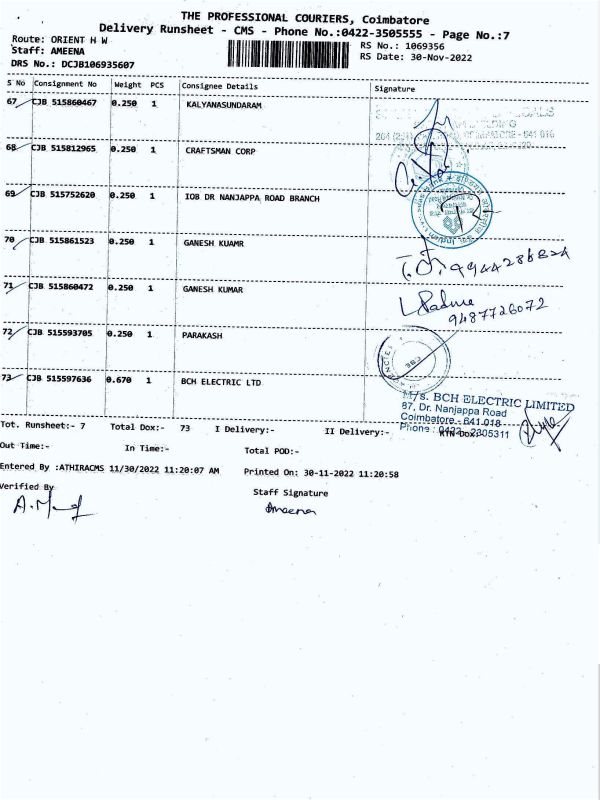 THE PROFESSIONAL COURIERS, Coimbatore
Delivery Runsheet - CMS - Phone No.:0422-3505555 - Page No.:7
Route: ORIENT H W
Staff: AMEENA
DRS No.: DCJB106935607
RS No.: 1069356
RS Date: 30-Nov-2022
S No Consignment No Weight PCS Consignee Details Signature
67 CJB 515860467 0.250 1 KALYANASUNDARAM
68 CJB 515812965 0.250 1 CRAFTSMAN CORP
69 CJB 515752620 0.250 1 IOB DR NANJAPPA ROAD BRANCH
70 CJB 515861523 0.250 1 GANESH KUAMR
71 CJB 515860472 0.250 1 GANESH KUMAR
Padma
9487726072
72 CJB 515593705 0.250 1 PARAKASH
73 CJB 515597636 0.670 1 BCH ELECTRIC LTD
M/s. BCH ELECTRIC LIMITED
87, Dr. Nanjappa Road
Coimbatore - 641 018
Phone : 0422 - 2305311
Tot. Runsheet:- 7 Total Dox:- 73 I Delivery:- II Delivery:- RTN Dox:-
Out Time:- In Time:- Total POD:-
Entered By :ATHIRACMS 11/30/2022 11:20:07 AM Printed On: 30-11-2022 11:20:58
Verified By
Staff Signature
Ameena